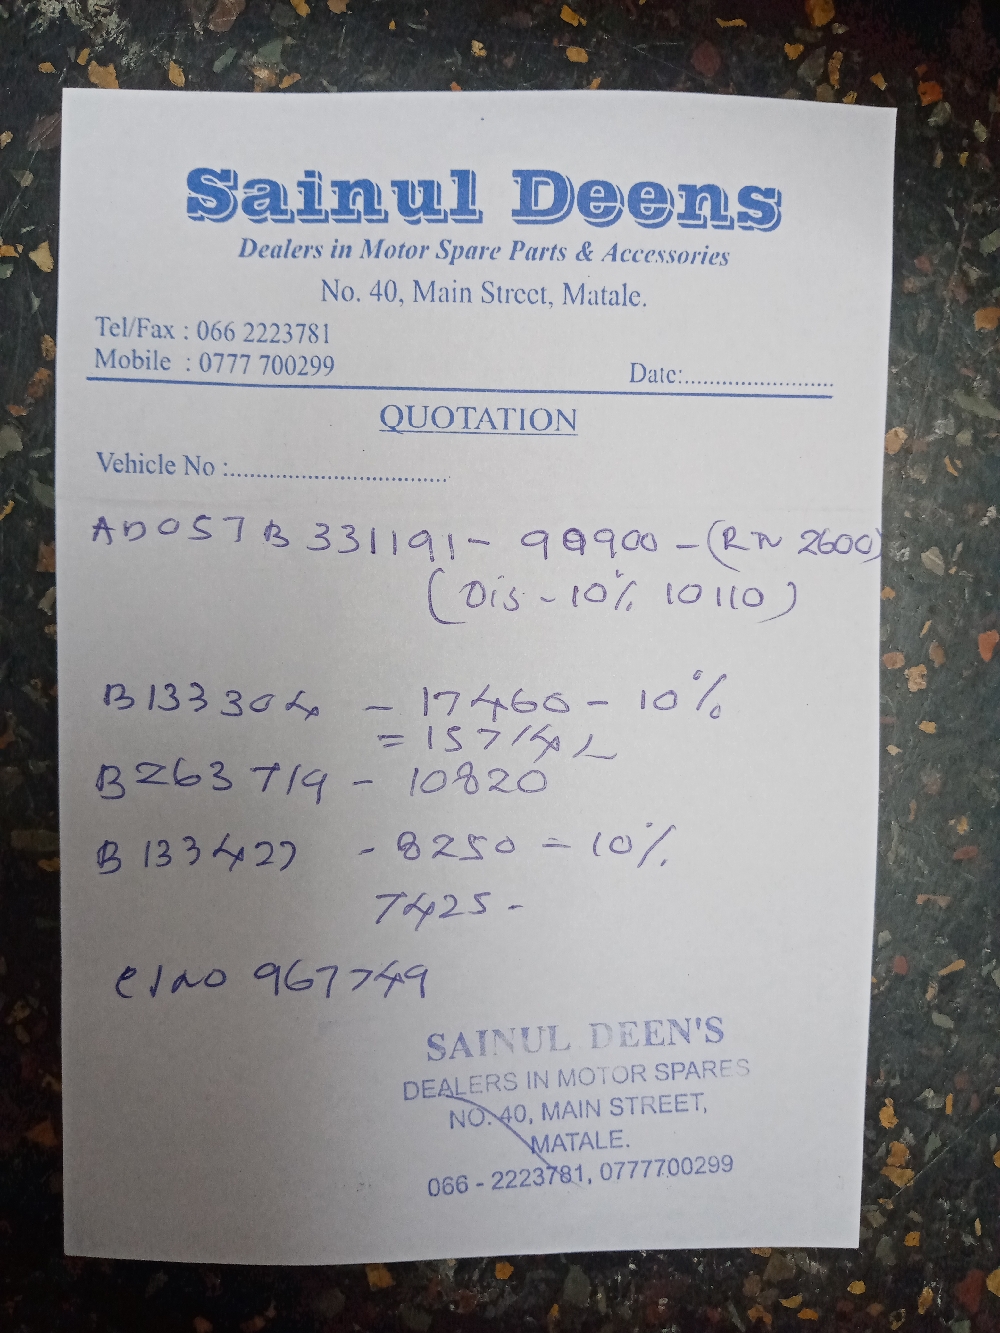 Sainul Deens
Dealers in Motor Spare Parts & Accessories
No. 40, Main Street, Matale.
Tel/Fax : 066 2223781
Mobile : 0777 700299
Date:........................
QUOTATION
Vehicle No :...................................
AD057B 331191 - 99900 - (RN 2600)
(Dis - 10% 10110)
B133304 - 17460 - 10%
= 15714
B263719 - 10820
B133427 - 8250 = 10%
7425 -
967749
SAINUL DEEN'S
DEALERS IN MOTOR SPARES
NO. 40, MAIN STREET,
MATALE.
066 - 2223781, 0777700299